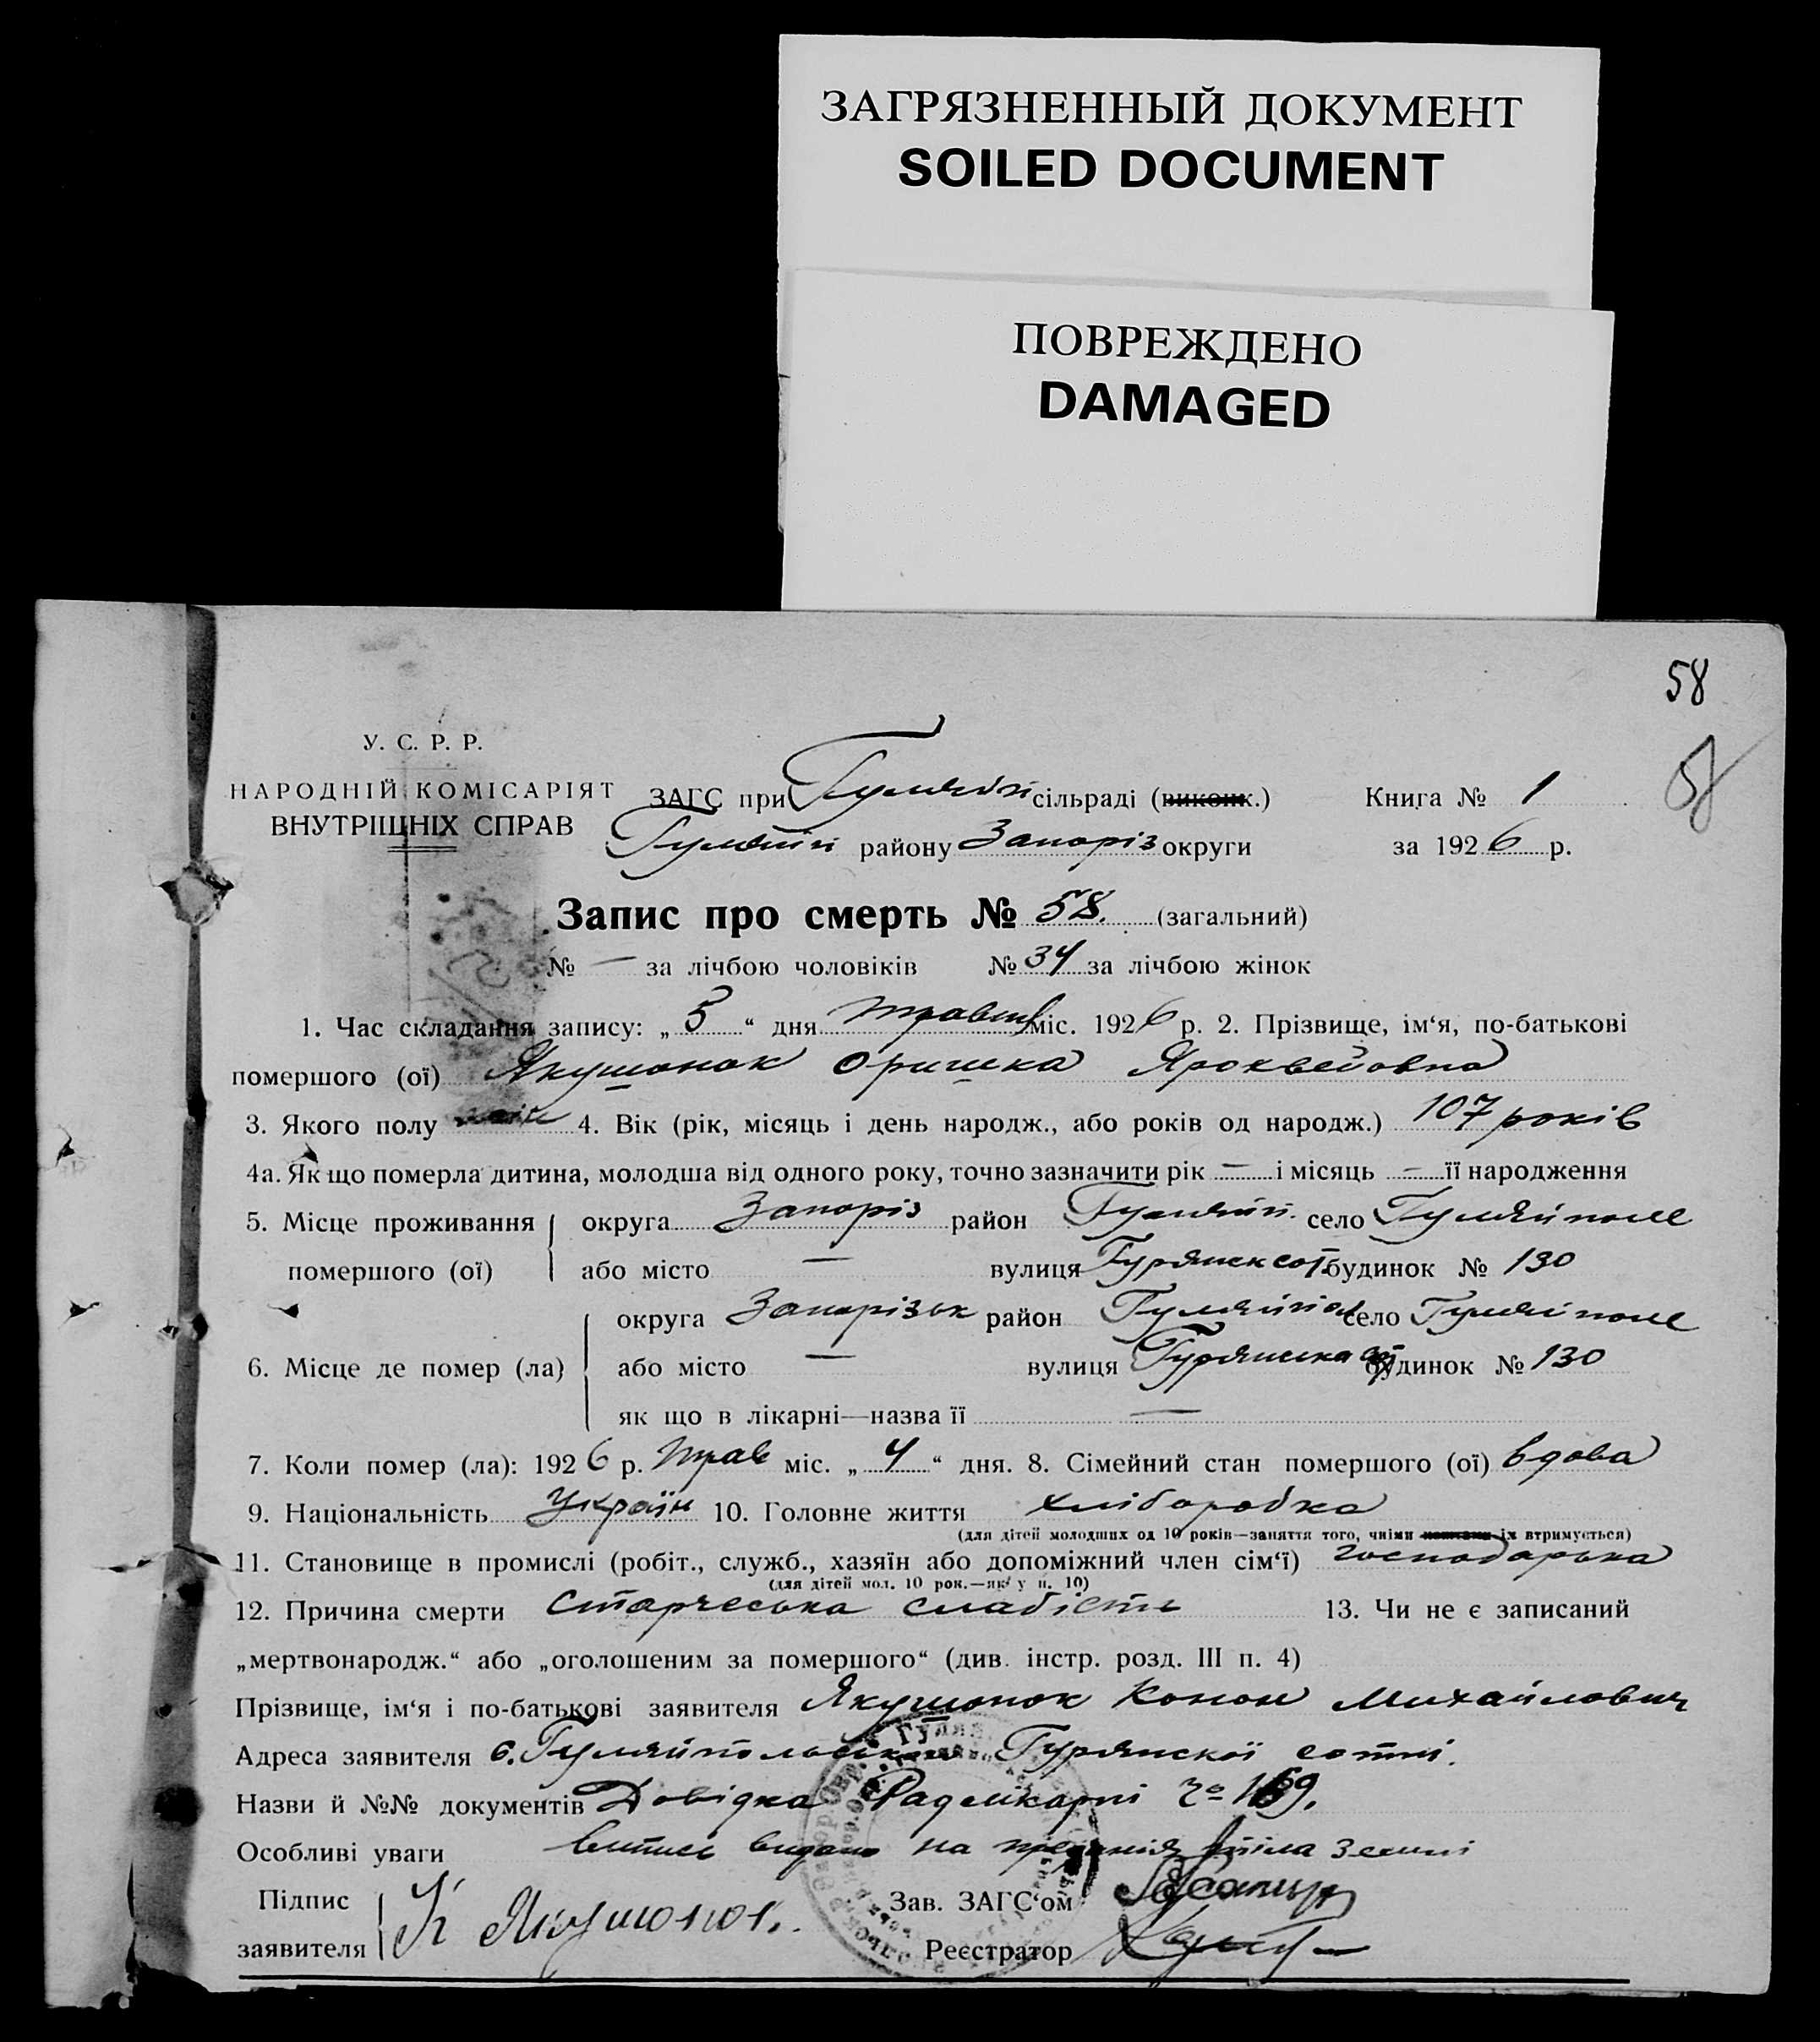 ЗАГРЯЗНЕННЫЙ ДОКУМЕНТ
SOILED DOCUMENT
ПОВРЕЖДЕНО
DAMAGED
58
У. С. Р. Р.
НАРОДНІЙ КОМІСАРІЯТ
ВНУТРІШНІХ СПРАВ
ЗАГС при Гуляйп сільраді (виконк.)
Гуляйп району Запоріз округи
Книга № 1
за 1926 р.
Запис про смерть № 58. (загальний)
№ — за лічбою чоловіків № 34 за лічбою жінок
1. Час складання запису: „5“ дня травня міс. 1926 р. 2. Прізвище, ім‘я, по-батькові
помершого (ої) Якушонок Оришка
3. Якого полу 4. Вік (рік, місяць і день народж., або років од народж.) 107 років
4а. Як що померла дитина, молодша від одного року, точно зазначити рік — і місяць — її народження
5. Місце проживання округа Запоріз район Гуляйп. село Гуляйполе
помершого (ої) або місто — вулиця будинок № 130
округа Запорізьк район Гуляйпол село Гуляйполе
6. Місце де помер (ла) або місто — вулиця будинок № 130
як що в лікарні—назва її —
7. Коли помер (ла): 1926 р. трав міс. „4“ дня. 8. Сімейний стан помершого (ої) вдова
9. Національність Україн 10. Головне життя хліборобка
(для дітей молодших од 10 років—заняття того, чиїми коштами їх втримується)
11. Становище в промислі (робіт., служб., хазяїн або допоміжний член сім‘ї) господарька
(для дітей мол. 10 рок.—як у п. 10)
12. Причина смерти Старческа слабість 13. Чи не є записаний
„мертвонародж.“ або „оголошеним за помершого“ (див. інстр. розд. III п. 4)
Прізвище, ім‘я і по-батькові заявителя Якушонок Конон Михайлович
Адреса заявителя с. Гурянскої сотні.
Назви й №№ документів Довідка Радлікарні № 169.
Особливі уваги витись видано на тіла землі
Підпис
заявителя К Якушонок.
Зав. ЗАГС‘ом
Реєстратор